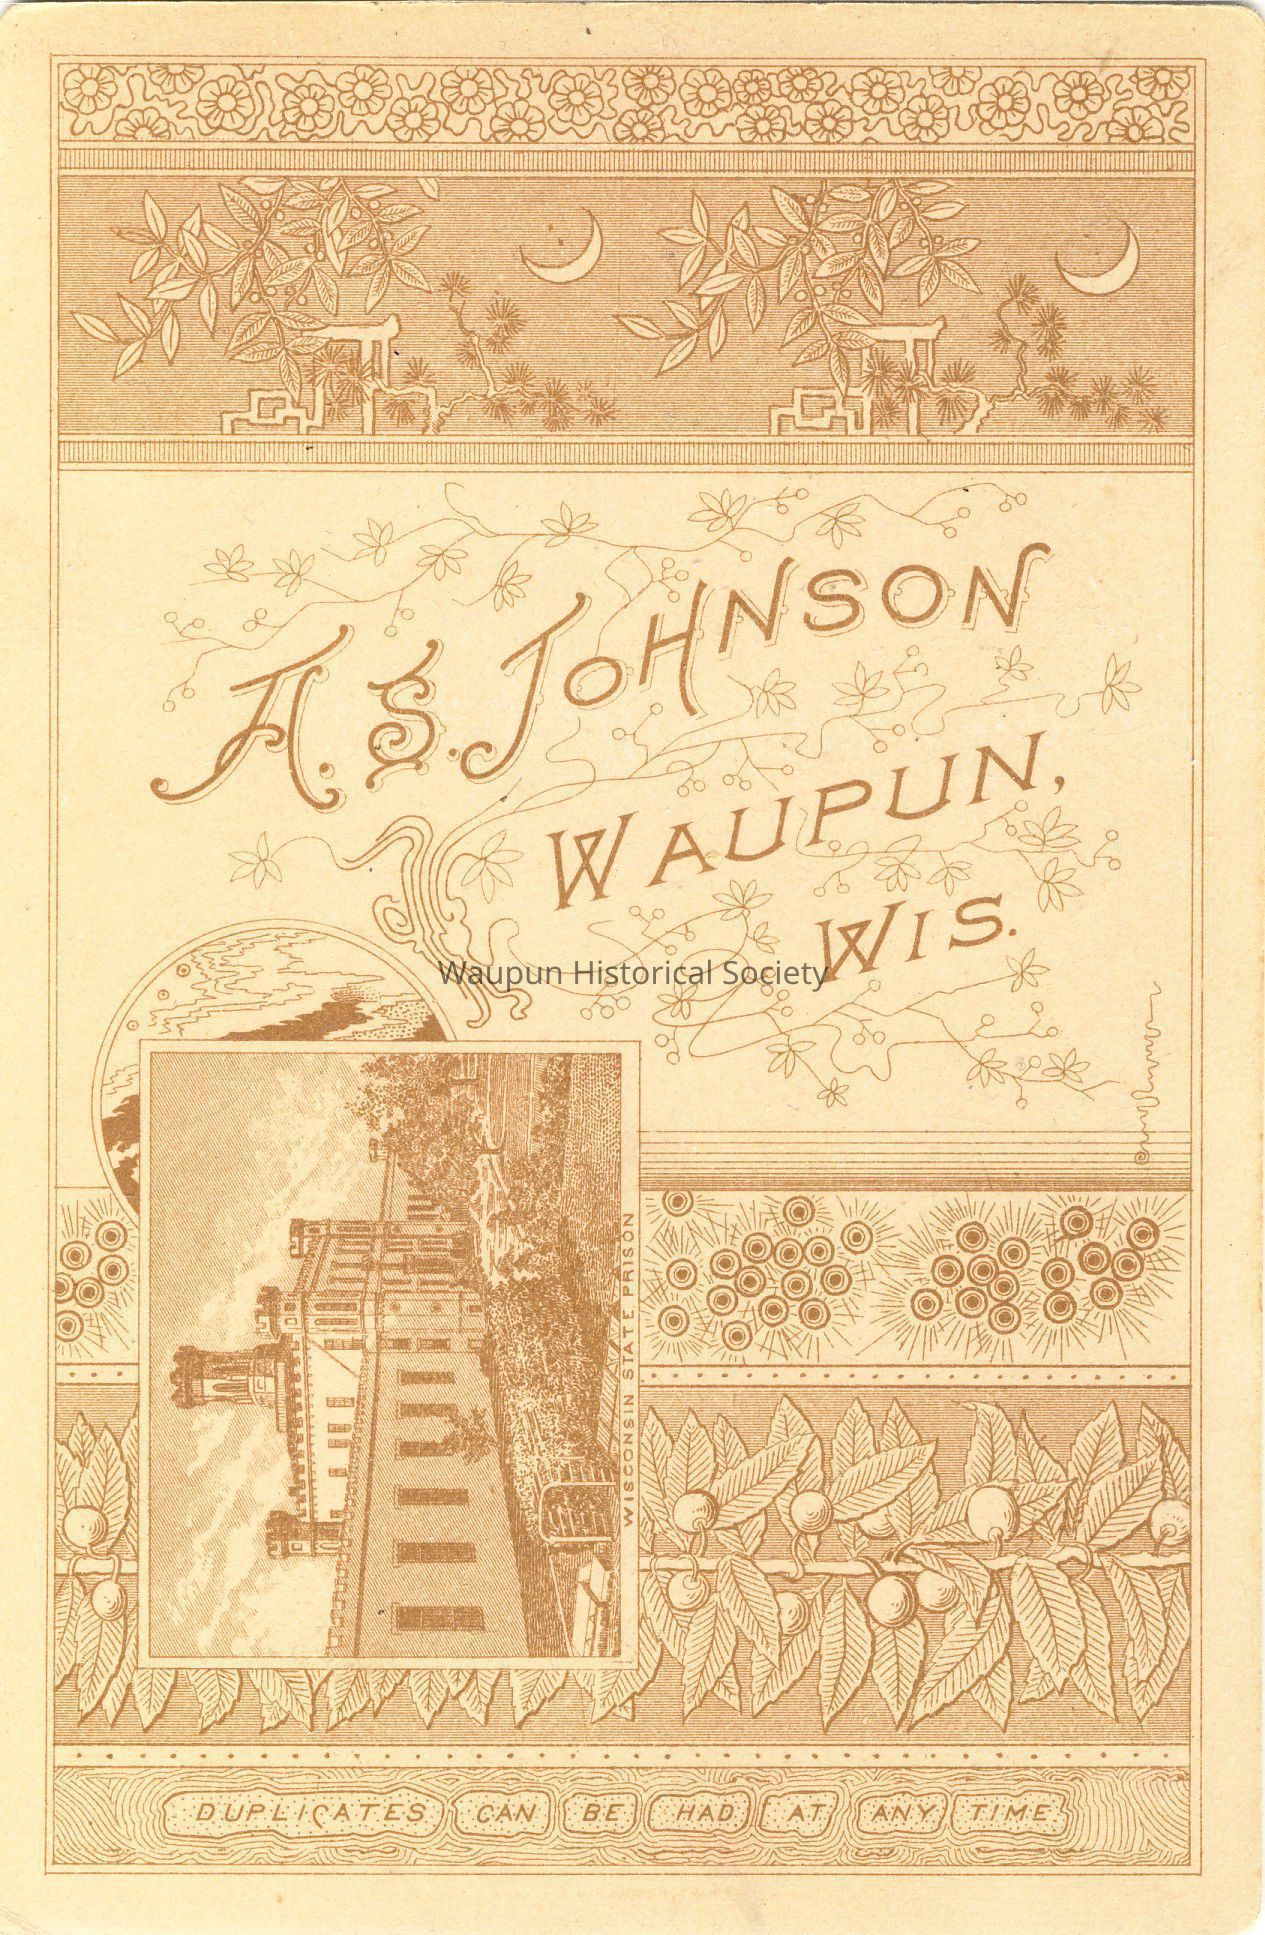 A. S. JOHNSON
WAUPUN,
WIS.
Waupun Historical Society
WISCONSIN STATE PRISON
DUPLICATES CAN BE HAD AT ANY TIME